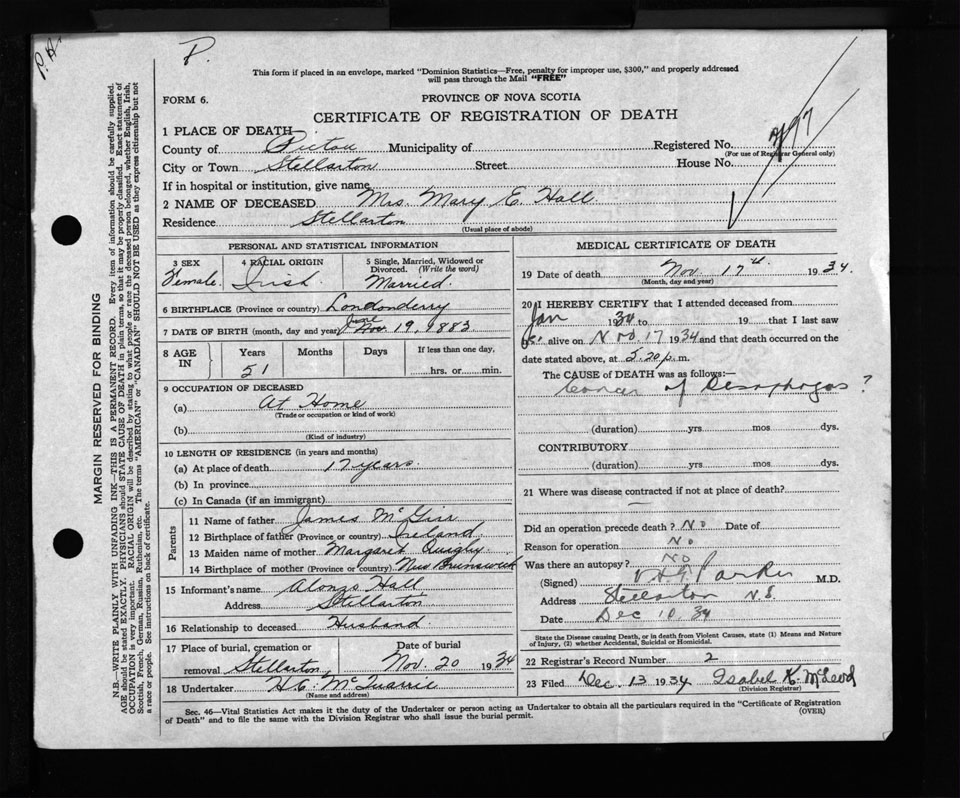 P.
This form if placed in an envelope, marked "Dominion Statistics—Free, penalty for improper use, $300," and properly addressed
will pass through the Mail "FREE"
FORM 6.
PROVINCE OF NOVA SCOTIA
CERTIFICATE OF REGISTRATION OF DEATH
1 PLACE OF DEATH
County of Pictou Municipality of Registered No.
(For use of Registrar General only)
City or Town Stellarton Street House No.
If in hospital or institution, give name
2 NAME OF DECEASED Mrs. Mary E. Hall.
Residence Stellarton
(Usual place of abode)
MARGIN RESERVED FOR BINDING
N.B.—WRITE PLAINLY WITH UNFADING INK—THIS IS A PERMANENT RECORD. Every item of information should be carefully supplied.
AGE should be stated EXACTLY. PHYSICIANS should STATE CAUSE OF DEATH in plain terms, so that it may be properly classified. Exact statement of
OCCUPATION is very important. RACIAL ORIGIN will be described by stating to what people or race the deceased person belonged, whether English, Irish,
Scottish, French, German, Russian, Ruthenian, etc. The terms "AMERICAN" or "CANADIAN" SHOULD NOT BE USED as they express citizenship but not
a race or people. See instructions on back of certificate.
PERSONAL AND STATISTICAL INFORMATION
3 SEX 4 RACIAL ORIGIN 5 Single, Married, Widowed or
Divorced. (Write the word)
Female. Irish Married.
6 BIRTHPLACE (Province or country) Londonderry
7 DATE OF BIRTH (month, day and year) June Nov. 19, 1883
8 AGE IN Years Months Days If less than one day,
51 hrs. or min.
9 OCCUPATION OF DECEASED
(a) At Home
(Trade or occupation or kind of work)
(b)
(Kind of industry)
10 LENGTH OF RESIDENCE (in years and months)
(a) At place of death 17 years.
(b) In province
(c) In Canada (if an immigrant)
Parents
11 Name of father James McGirr
12 Birthplace of father (Province or country) Ireland
13 Maiden name of mother Margaret Quigly.
14 Birthplace of mother (Province or country) New Brunswick
15 Informant's name Alonzo Hall.
Address Stellarton
16 Relationship to deceased Husband
17 Place of burial, cremation or Date of burial
removal Stellarton Nov. 20 1934
18 Undertaker H.C. McQuarrie
(Name and address)
MEDICAL CERTIFICATE OF DEATH
19 Date of death Nov. 17th 1934.
(Month, day and year)
20 I HEREBY CERTIFY that I attended deceased from
Jan 1934 to 19 that I last saw
alive on Nov. 17 1934 and that death occurred on the
date stated above, at 5.20 p.m.
The CAUSE of DEATH was as follows:—
Cancer of Oesophagus ?
(duration) yrs mos dys.
CONTRIBUTORY
(duration) yrs mos dys.
21 Where was disease contracted if not at place of death?
—
Did an operation precede death? No Date of
Reason for operation No
Was there an autopsy? No
(Signed) Parker M.D.
Address Stellarton N.S.
Date Dec 10. 34
State the Disease causing Death, or in death from Violent Causes, state (1) Means and Nature
of Injury, (2) whether Accidental, Suicidal or Homicidal.
22 Registrar's Record Number 2
23 Filed Dec. 13 1934 Isabel K. McLeod
(Division Registrar)
Sec. 46—Vital Statistics Act makes it the duty of the Undertaker or person acting as Undertaker to obtain all the particulars required in the "Certificate of Registration
of Death" and to file the same with the Division Registrar who shall issue the burial permit. (OVER)